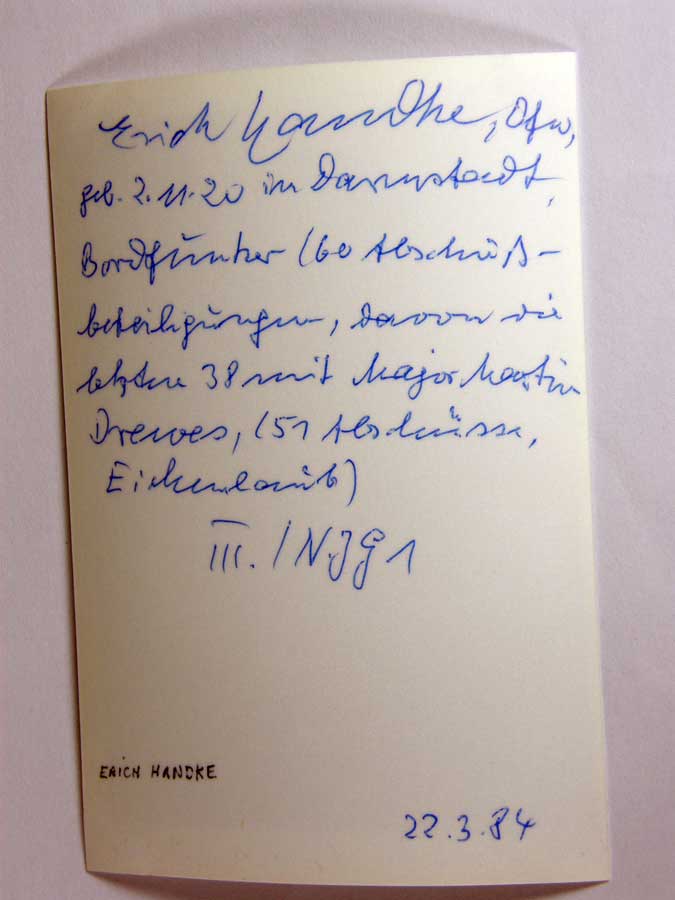 Erich Handke, Ofw,
geb. 2.11.20 in Darmstadt,
Bordfunker (60 Abschuß-
beteiligungen, davon die
letzten 38 mit Major Martin
Drewes, (51 Abschüsse,
Eichenlaub)
III./NJG 1
ERICH HANDKE
22.3.84